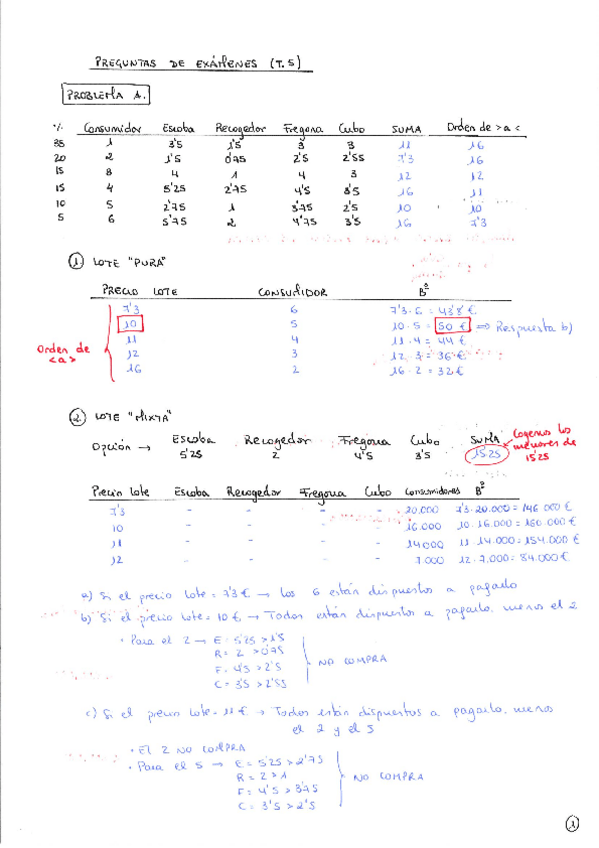 PREGUNTAS DE EXÁMENES (T.5)
PROBLEMA A.
% Consumidor Escoba Recogedor Fregona Cubo SUMA Orden de >a<
35 1 3'5 1'5 3 3 11 16
20 2 1'5 0'75 2'5 2'55 7'3 16
15 3 4 1 4 3 12 12
15 4 5'25 2'75 4'5 3'5 16 11
10 5 2'75 1 3'75 2'5 10 10
5 6 5'75 2 4'75 3'5 16 7'3
1. LOTE "PURA"
PRECIO LOTE CONSUMIDOR Bº
7'3 6 7'3·6 = 43'8 €
10 5 10·5 = 50 € ⇒ Respuesta b)
11 4 11·4 = 44 €
12 3 12·3 = 36 €
16 2 16·2 = 32 €
Orden de <a>
2. LOTE "MIXTA"
Opción → Escoba Recogedor Fregona Cubo SUMA
5'25 2 4'5 3'5 15'25
Cogemos los menores de 15'25
Precio Lote Escoba Recogedor Fregona Cubo Consumidores Bº
7'3 - - - - 20.000 7'3·20.000 = 146 000 €
10 - - - - 16.000 10·16.000 = 160 000 €
11 - - - - 14000 11·14.000 = 154.000 €
12 - - - - 7.000 12·7.000 = 84.000 €
a) Si el precio lote = 7'3 € → Los 6 están dispuestos a pagarlo
b) Si el precio lote = 10 € → Todos están dispuestos a pagarlo, menos el 2
· Para el 2 → E = 5'25 > 1'5
R = 2 > 0'75
F = 4'5 > 2'5
C = 3'5 > 2'55
NO COMPRA
c) Si el precio lote = 11 € → Todos están dispuestos a pagarlo, menos
el 2 y el 5
· El 2 NO COMPRA
· Para el 5 → E = 5'25 > 2'75
R = 2 > 1
F = 4'5 > 3'75
C = 3'5 > 2'5
NO COMPRA
1